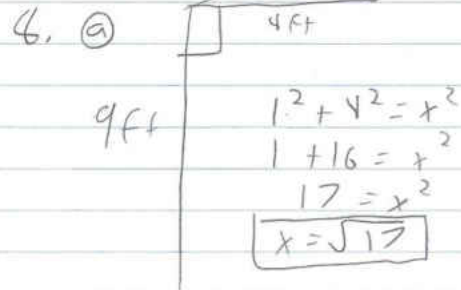 8. ⓐ
4 ft
9 ft
1² + 4² = x²
1 + 16 = x²
17 = x²
x = √17